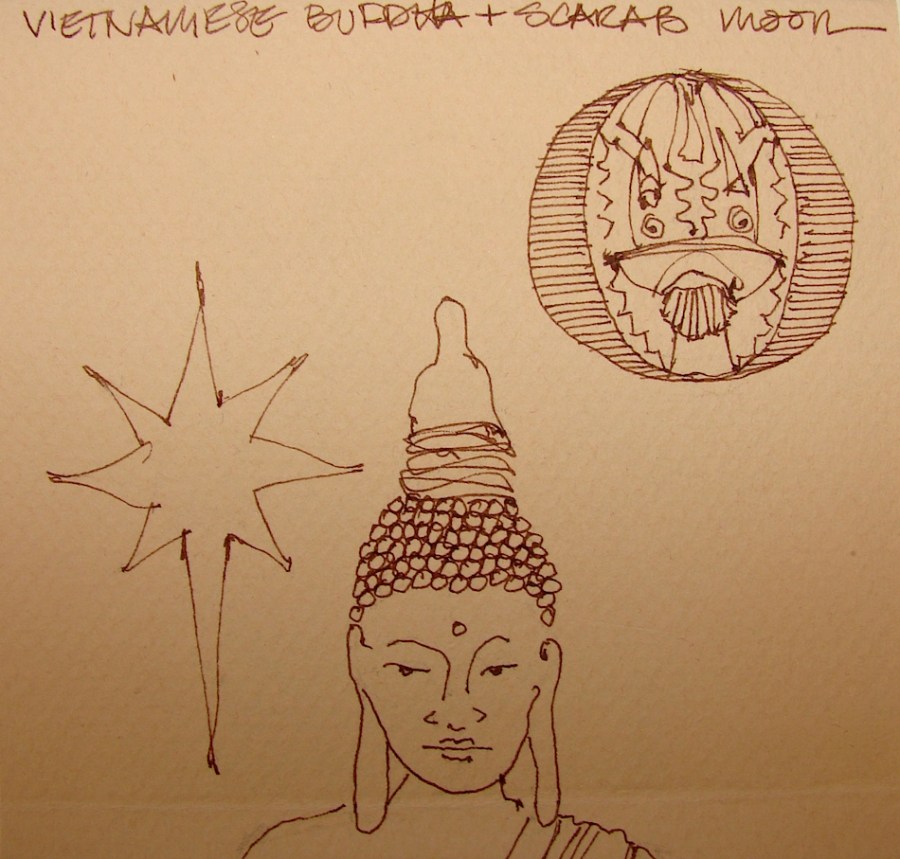 VIETNAMESE BUDDHA + SCARAB moon